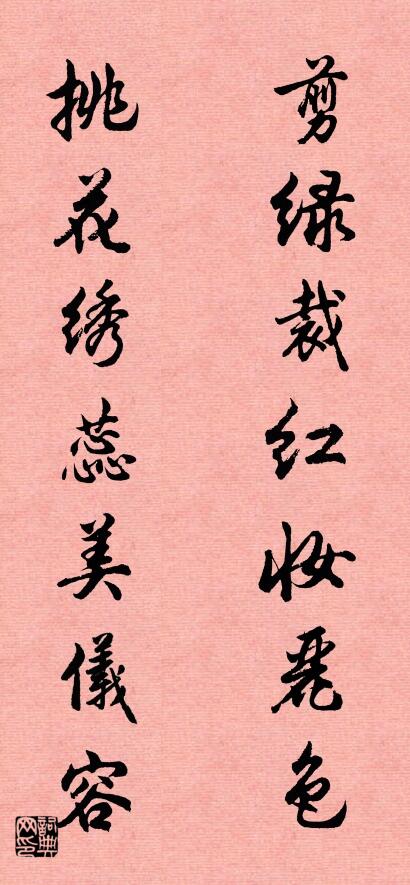 剪绿裁红妆丽色
挑花绣蕊美儀容
詞典网印